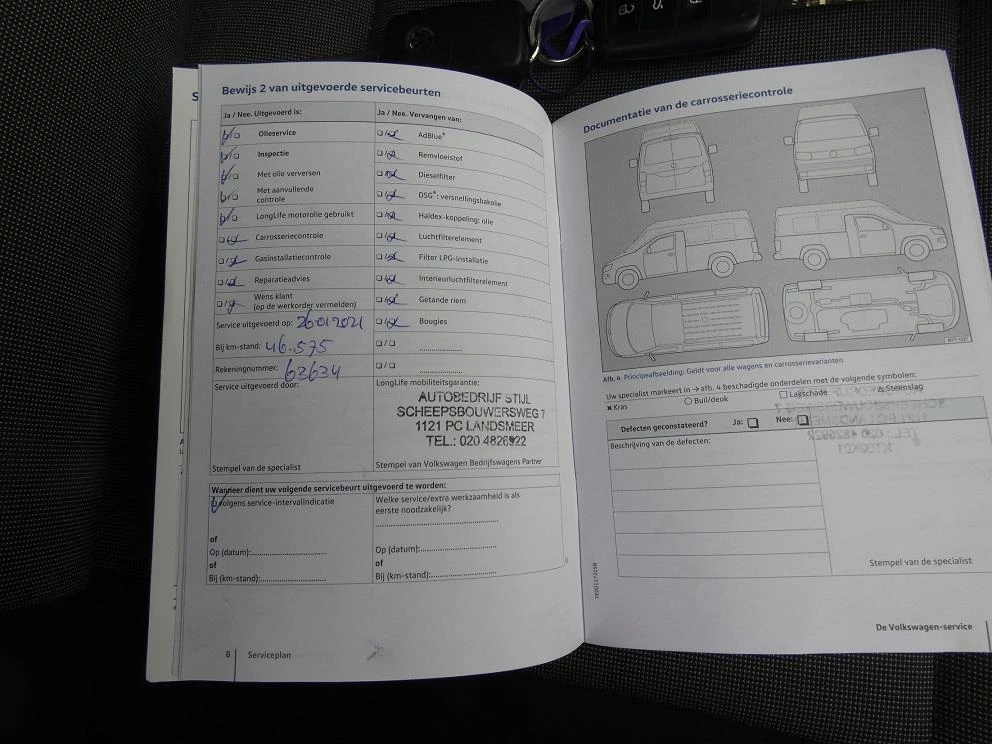 Bewijs 2 van uitgevoerde servicebeurten
Ja / Nee. Uitgevoerd is:
Ja / Nee. Vervangen van:
Olieservice
AdBlue®
Inspectie
Remvloeistof
Met olie verversen
Dieselfilter
Met aanvullende
controle
DSG®: versnellingsbakolie
LongLife motorolie gebruikt
Haldex-koppeling: olie
Carrosseriecontrole
Luchtfilterelement
Gasinstallatiecontrole
Filter LPG-installatie
Reparatieadvies
Interieurluchtfilterelement
Wens klant
(op de werkorder vermelden)
Getande riem
Service uitgevoerd op: 26-01-2021
Bougies
Bij km-stand: 46.575
Rekeningnummer: 63634
Service uitgevoerd door:
LongLife mobiliteitsgarantie:
AUTOBEDRIJF STIJL
SCHEEPSBOUWERSWEG 7
1121 PC LANDSMEER
TEL.: 020 4826922
Stempel van de specialist
Stempel van Volkswagen Bedrijfswagens Partner
Wanneer dient uw volgende servicebeurt uitgevoerd te worden:
volgens service-intervalindicatie
of
Op (datum):
of
Bij (km-stand):
Welke service/extra werkzaamheid is als
eerste noodzakelijk?
Op (datum):
of
Bij (km-stand):
8 Serviceplan
Documentatie van de carrosseriecontrole
Afb. 4 Principeafbeelding: Geldt voor alle wagens en carrosserievarianten
Uw specialist markeert in → afb. 4 beschadigde onderdelen met de volgende symbolen:
Kras
Buil/deuk
Lakschade
Steenslag
Defecten geconstateerd? Ja: Nee:
Beschrijving van de defecten:
Stempel van de specialist
De Volkswagen-service